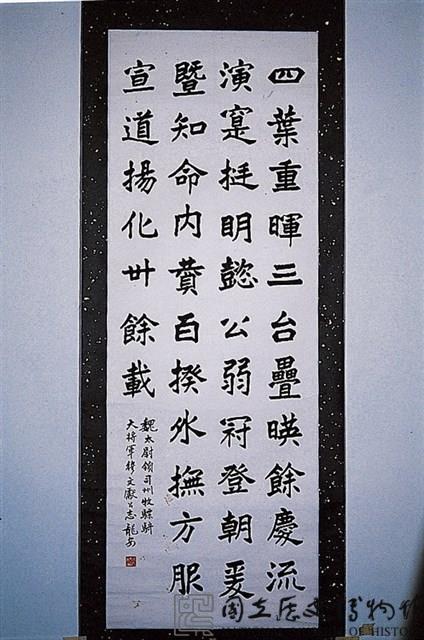 四葉重暉三台疊暎餘慶流
演寔挺明懿公弱冠登朝爰
暨知命內賛百揆外撫方服
宣道揚化卅餘載
魏太尉領司州牧驃騎
大將軍穆文獻公志龍安
國立歷史博物館
OF HISTO